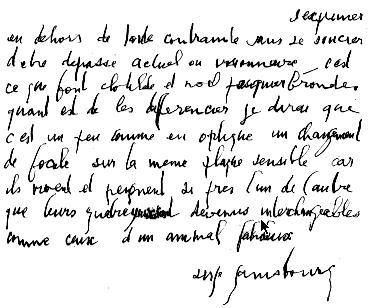 s'exprimer
en dehors de toute contrainte sans se soucier
d'etre depassé actuel ou visionnaire c'est
ce que font clotilde et noel
quant est de les differencier je dirai que
c'est un peu comme en optique un changement
de focale sur la meme plaque sensible car
ils vivent et peignent si pres l'un de l'autre
que leurs quatre yeux sont devenus interchangeables
comme ceux d'un animal fabuleux
serge gainsbourg